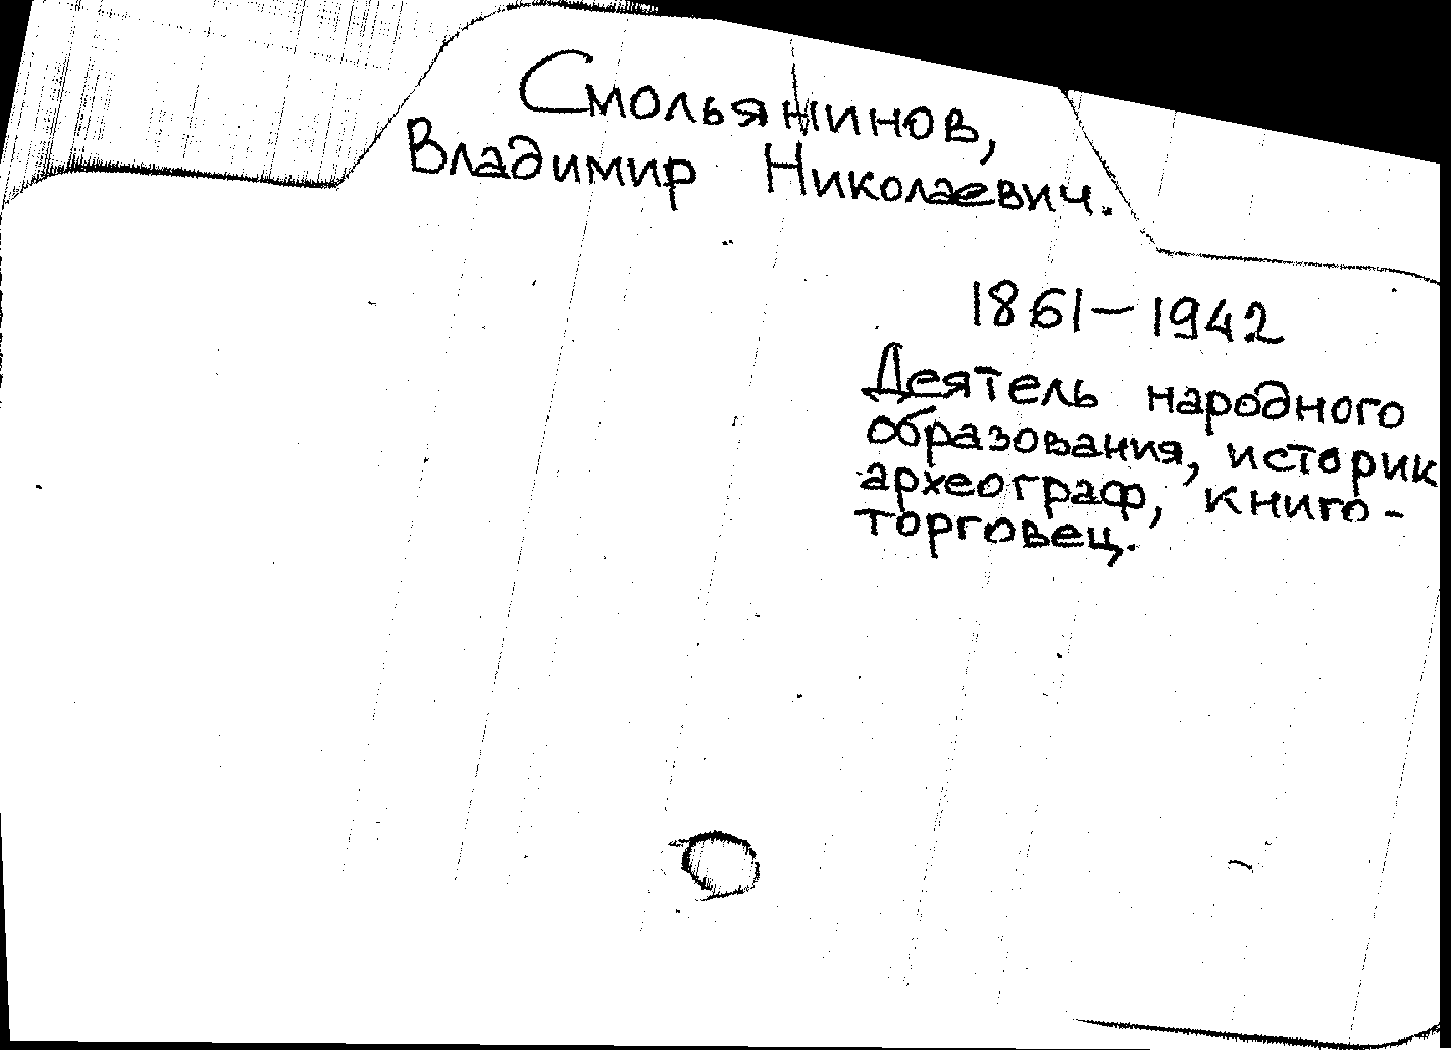 Смольянинов,
Владимир Николаевич.
1861-1942
Деятель народного
образования, историк
археограф, книго-
торговец.